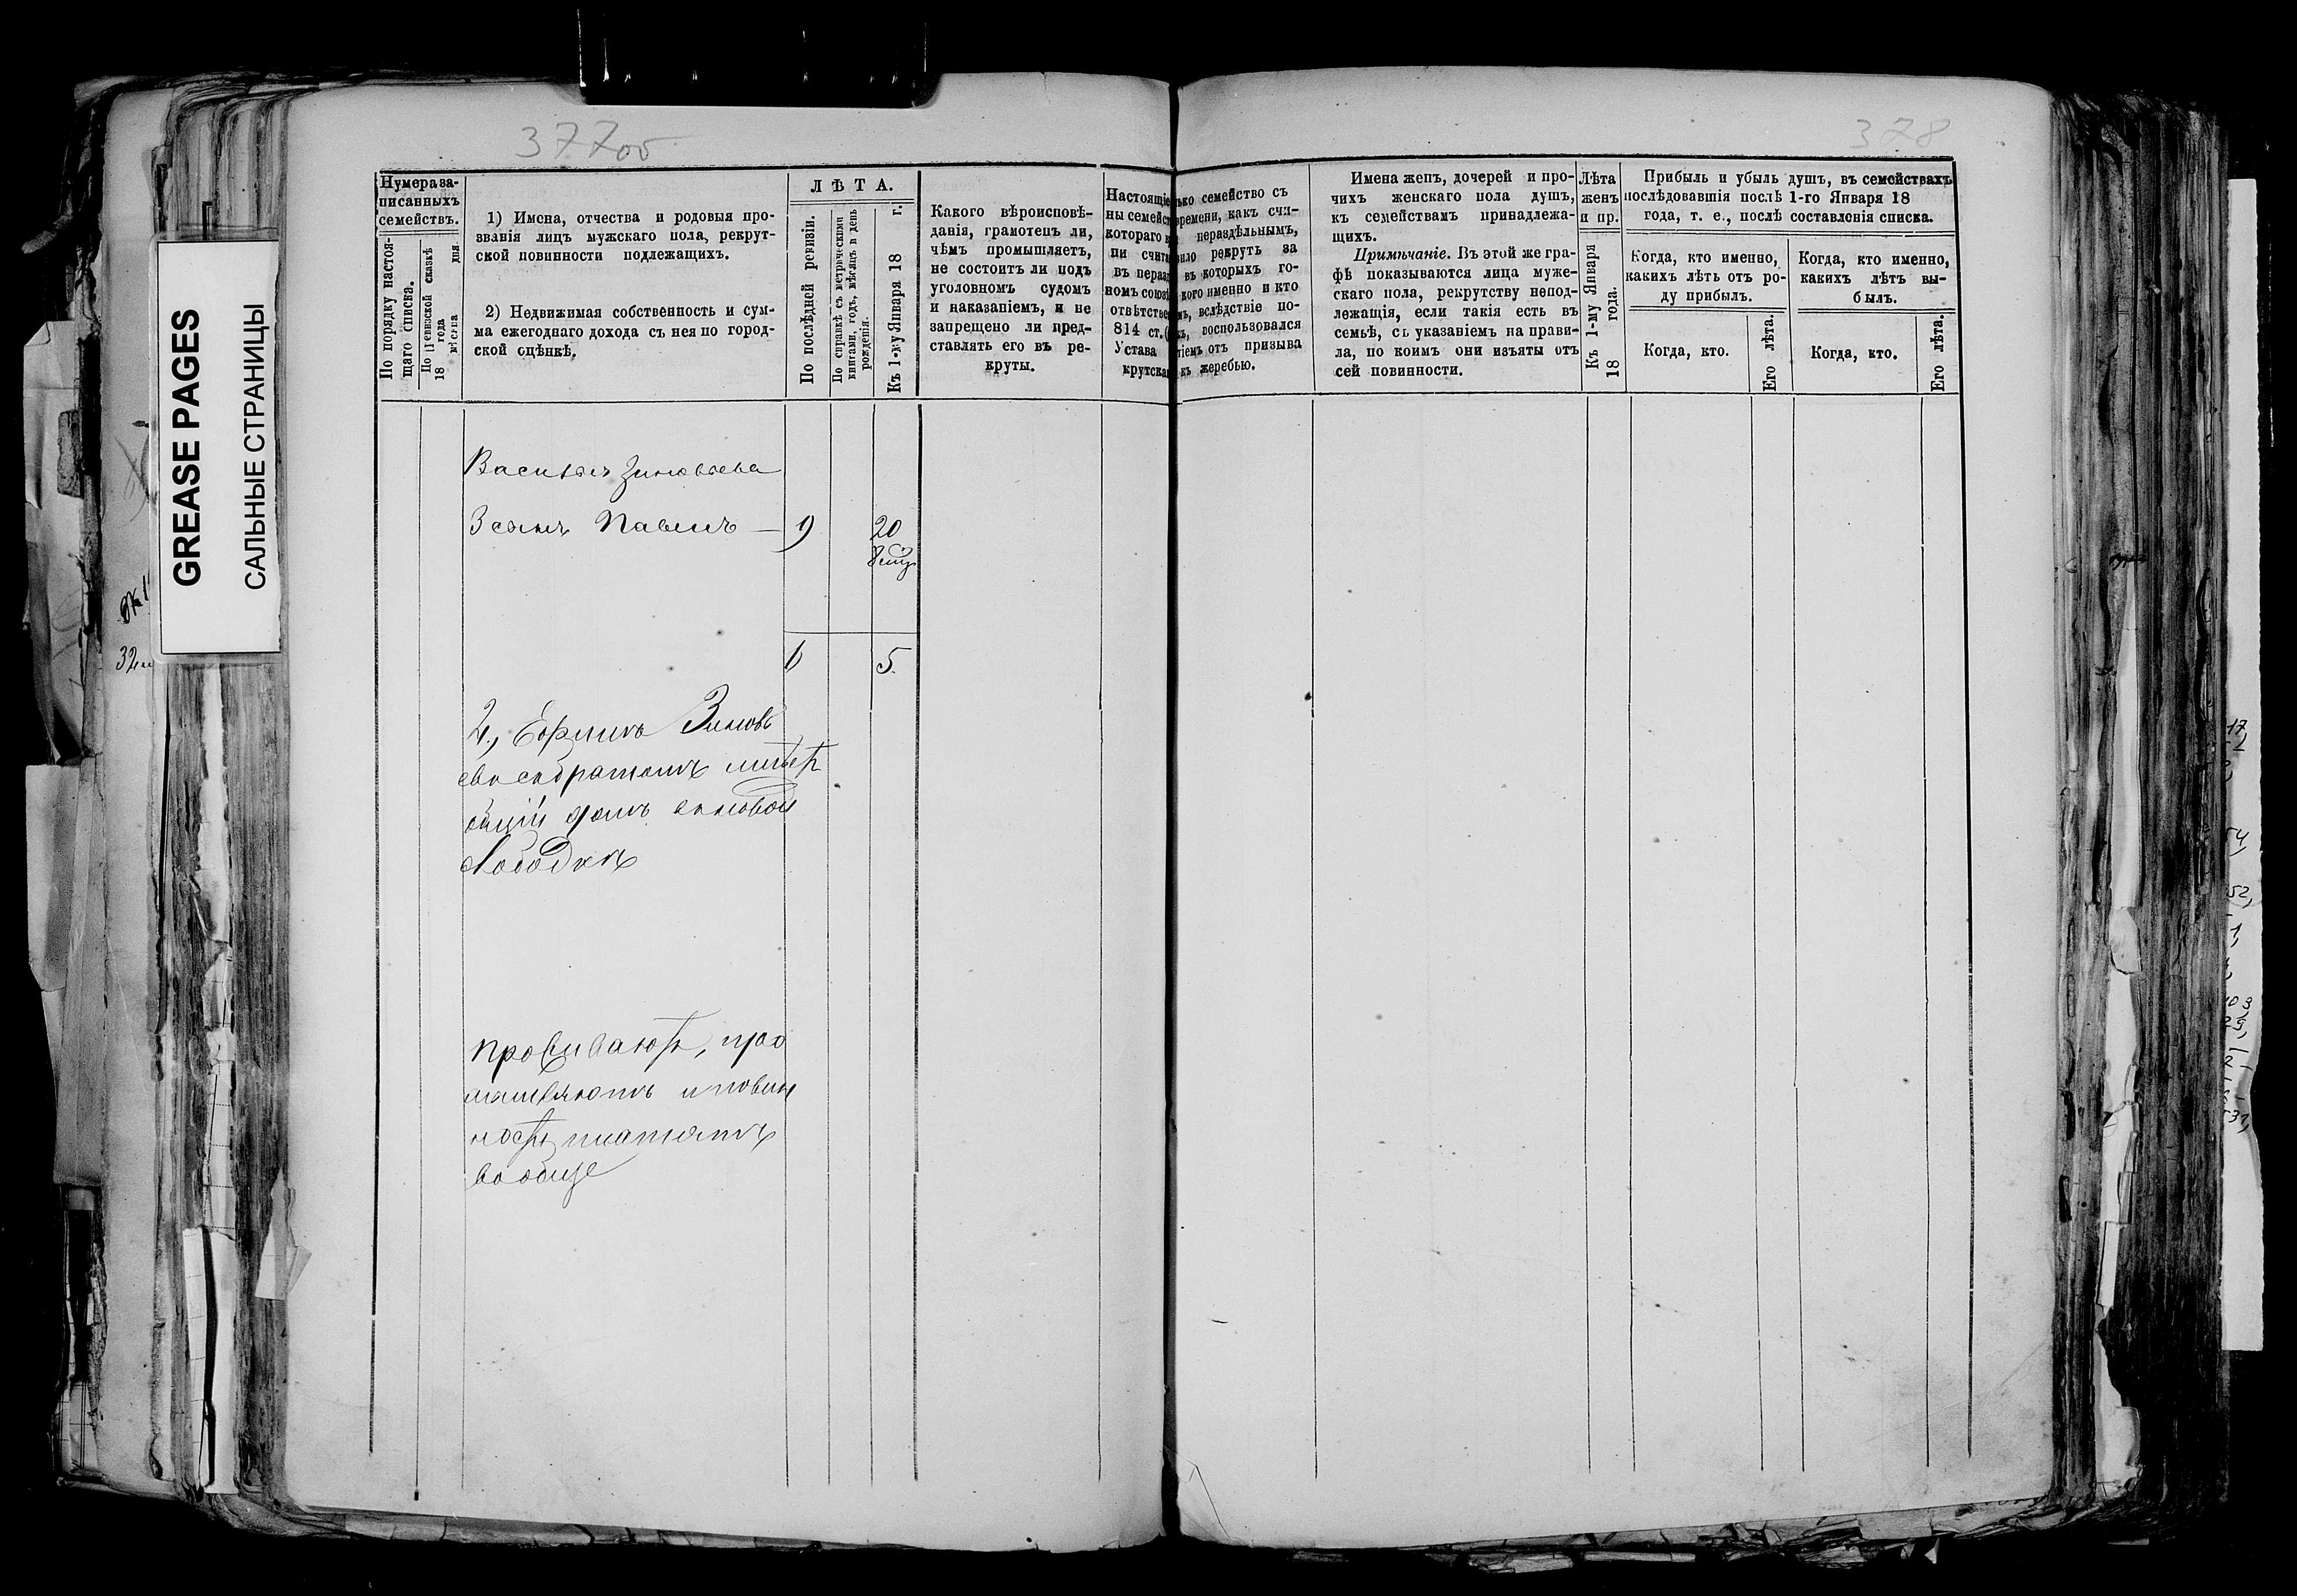 GREASE PAGES
САЛЬНЫЕ СТРАНИЦЫ
377об
378
Нумера за-
писанныхъ
семействъ.
По порядку настоя-
щаго списка.
По ревизской сказкѣ
18 года
мѣсяца дня.
1) Имена, отчества и родовыя про-
званія лицъ мужскаго пола, рекрут-
ской повинности подлежащихъ.
2) Недвижимая собственность и сум-
ма ежегоднаго дохода съ нея по город-
ской оцѣнкѣ.
ЛѢТА.
По послѣдней ревизіи.
По справкѣ съ метрическими
книгами, годъ, мѣсяцъ и день
рожденія.
Къ 1-му Января 18 г.
Какого вѣроисповѣ-
данія, грамотенъ ли,
чѣмъ промышляетъ,
не состоитъ ли подъ
уголовномъ судомъ
и наказаніемъ, и не
запрещено ли пред-
ставлять его въ ре-
круты.
Настоящіе
ны семейст
котораго в
ни счита
въ нераз
номъ союз
отвѣтстве
814 ст.
Устава
крутска
ько семейство съ
времени, какъ счи-
нераздѣльнымъ,
вило рекрутъ за
въ которыхъ го-
кого именно и кто
мъ, вслѣдствіе по-
къ, воспользовался
тіемъ отъ призыва
къ жеребью.
Имена женъ, дочерей и про-
чихъ женскаго пола душъ,
къ семействамъ принадлежа-
щихъ.
Примѣчаніе. Въ этой же гра-
фѣ показываются лица муже-
скаго пола, рекрутству непод-
лежащія, если такія есть въ
семьѣ, съ указаніемъ на прави-
ла, по коимъ они изъяты отъ
сей повинности.
Лѣта
женъ
и пр.
Къ 1-му Января
18 года.
Прибыль и убыль душъ, въ семействахъ
послѣдовавшія послѣ 1-го Января 18
года, т. е., послѣ составленія списка.
Когда, кто именно,
какихъ лѣтъ отъ ро-
ду прибылъ.
Когда, кто.
Его лѣта.
Когда, кто именно,
какихъ лѣтъ вы-
былъ.
Когда, кто.
Его лѣта.
Василья Зиновьева
3 сынъ Павелъ — 9 20
6 5.
2., Ефимъ Зиновь
евъ съ братомъ имѣетъ
общій домъ въ новой
Слободкѣ
проживаютъ, про
мышляютъ и повин
ность платятъ
вообще